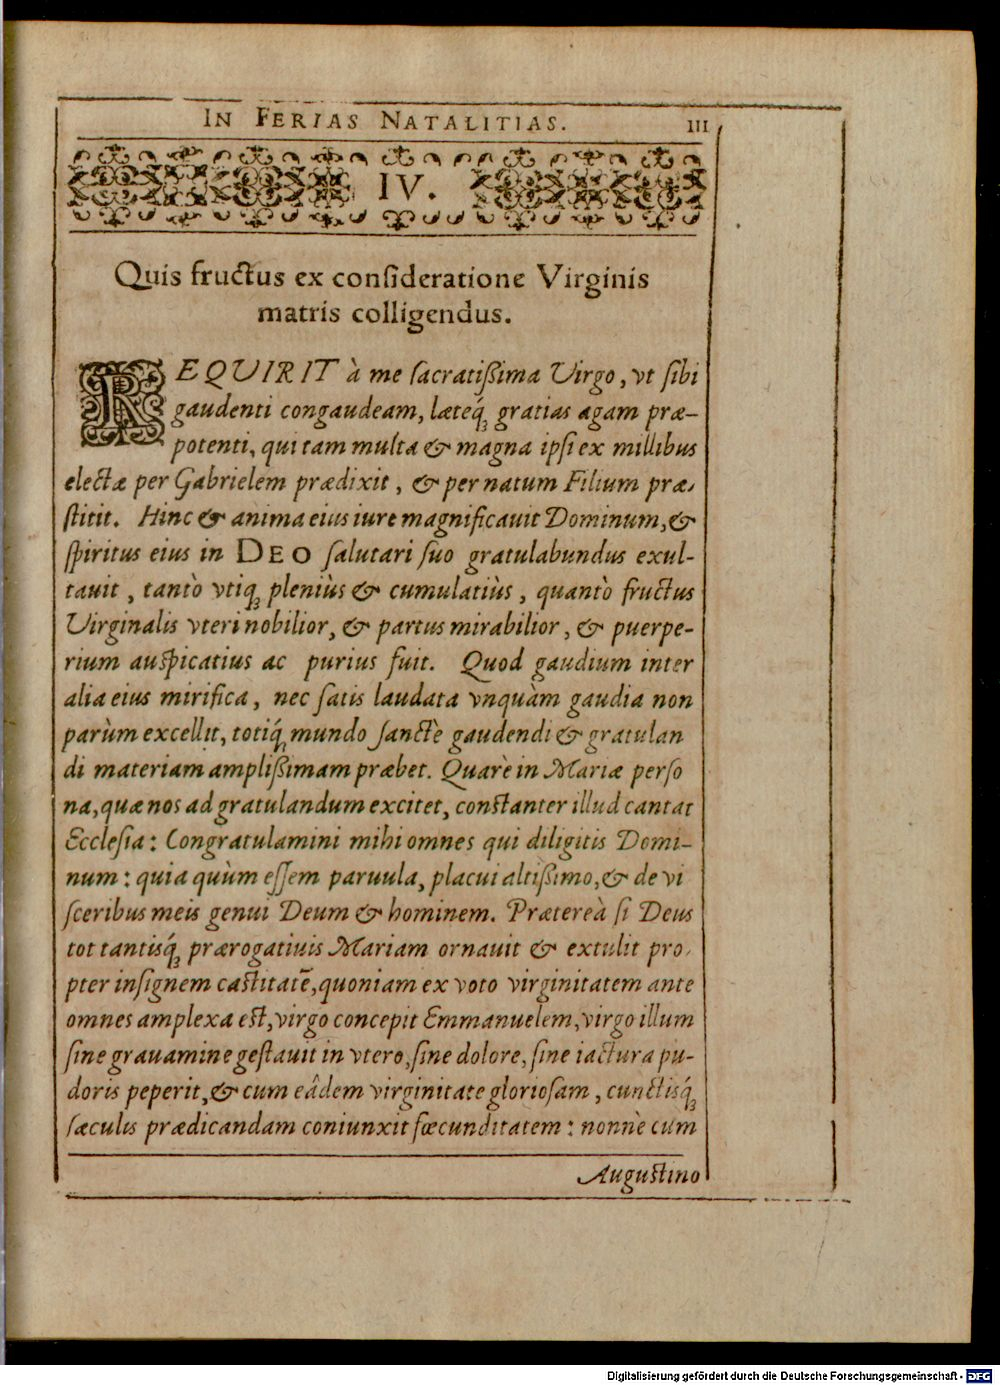 IN FERIAS NATALITIAS. 111
IV.
Quis fructus ex consideratione Virginis
matris colligendus.
REQUIRIT à me sacratißima Virgo, vt sibi
gaudenti congaudeam, læteq́ꝫ gratias agam præ-
potenti, qui tam multa & magna ipsi ex millibus
electæ per Gabrielem prædixit, & per natum Filium præ-
stitit. Hinc & anima eius iure magnificauit Dominum, &
spiritus eius in DEO salutari suo gratulabundus exul-
tauit, tantò vtiqꝫ pleniùs & cumulatiùs, quantò fructus
Virginalis vteri nobilior, & partus mirabilior, & puerpe-
rium auspicatius ac purius fuit. Quod gaudium inter
alia eius mirifica, nec satis laudata vnquàm gaudia non
parùm excellit, totiq́ꝫ mundo sanctè gaudendi & gratulan
di materiam amplißimam præbet. Quarè in Mariæ perso
na, quæ nos ad gratulandum excitet, constanter illud cantat
Ecclesia: Congratulamini mihi omnes qui diligitis Domi-
num: quia quùm essem paruula, placui altißimo, & de vi
sceribus meis genui Deum & hominem. Prætereà si Deus
tot tantisq́ꝫ prærogatiuis Mariam ornauit & extulit pro-
pter insignem castitatē, quoniam ex voto virginitatem ante
omnes amplexa est, virgo concepit Emmanuelem, virgo illum
sine grauamine gestauit in vtero, sine dolore, sine iactura pu-
doris peperit, & cum eâdem virginitate gloriosam, cunctisq́ꝫ
sæculis prædicandam coniunxit fœcunditatem: nonnè cum
Augustino
Digitalisierung gefördert durch die Deutsche Forschungsgemeinschaft - DFG